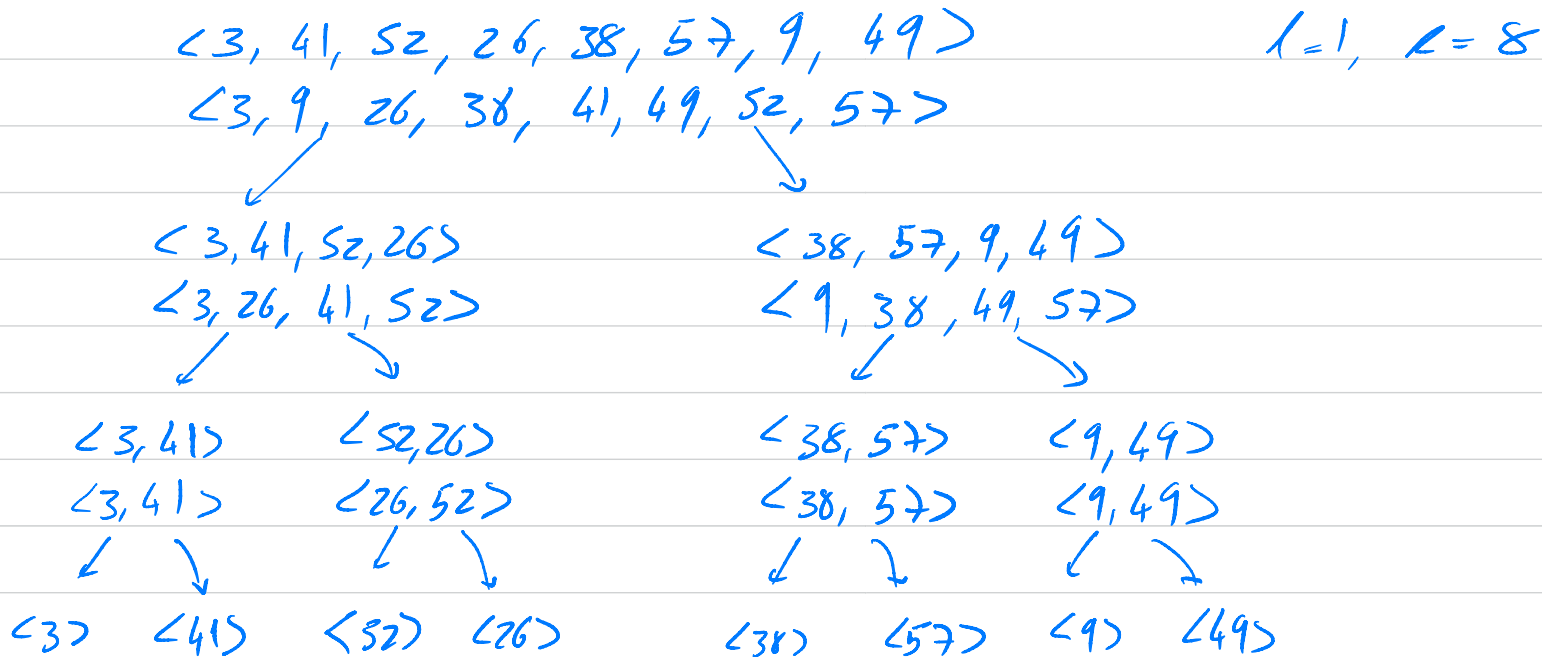 <3, 41, 52, 26, 38, 57, 9, 49> l=1, r=8
<3, 9, 26, 38, 41, 49, 52, 57>
<3,41,52,26> <38, 57, 9, 49>
<3,26, 41, 52> <9, 38, 49, 57>
<3,41> <52,26> <38,57> <9,49>
<3,41> <26,52> <38, 57> <9,49>
<3> <41> <52> <26> <38> <57> <9> <49>